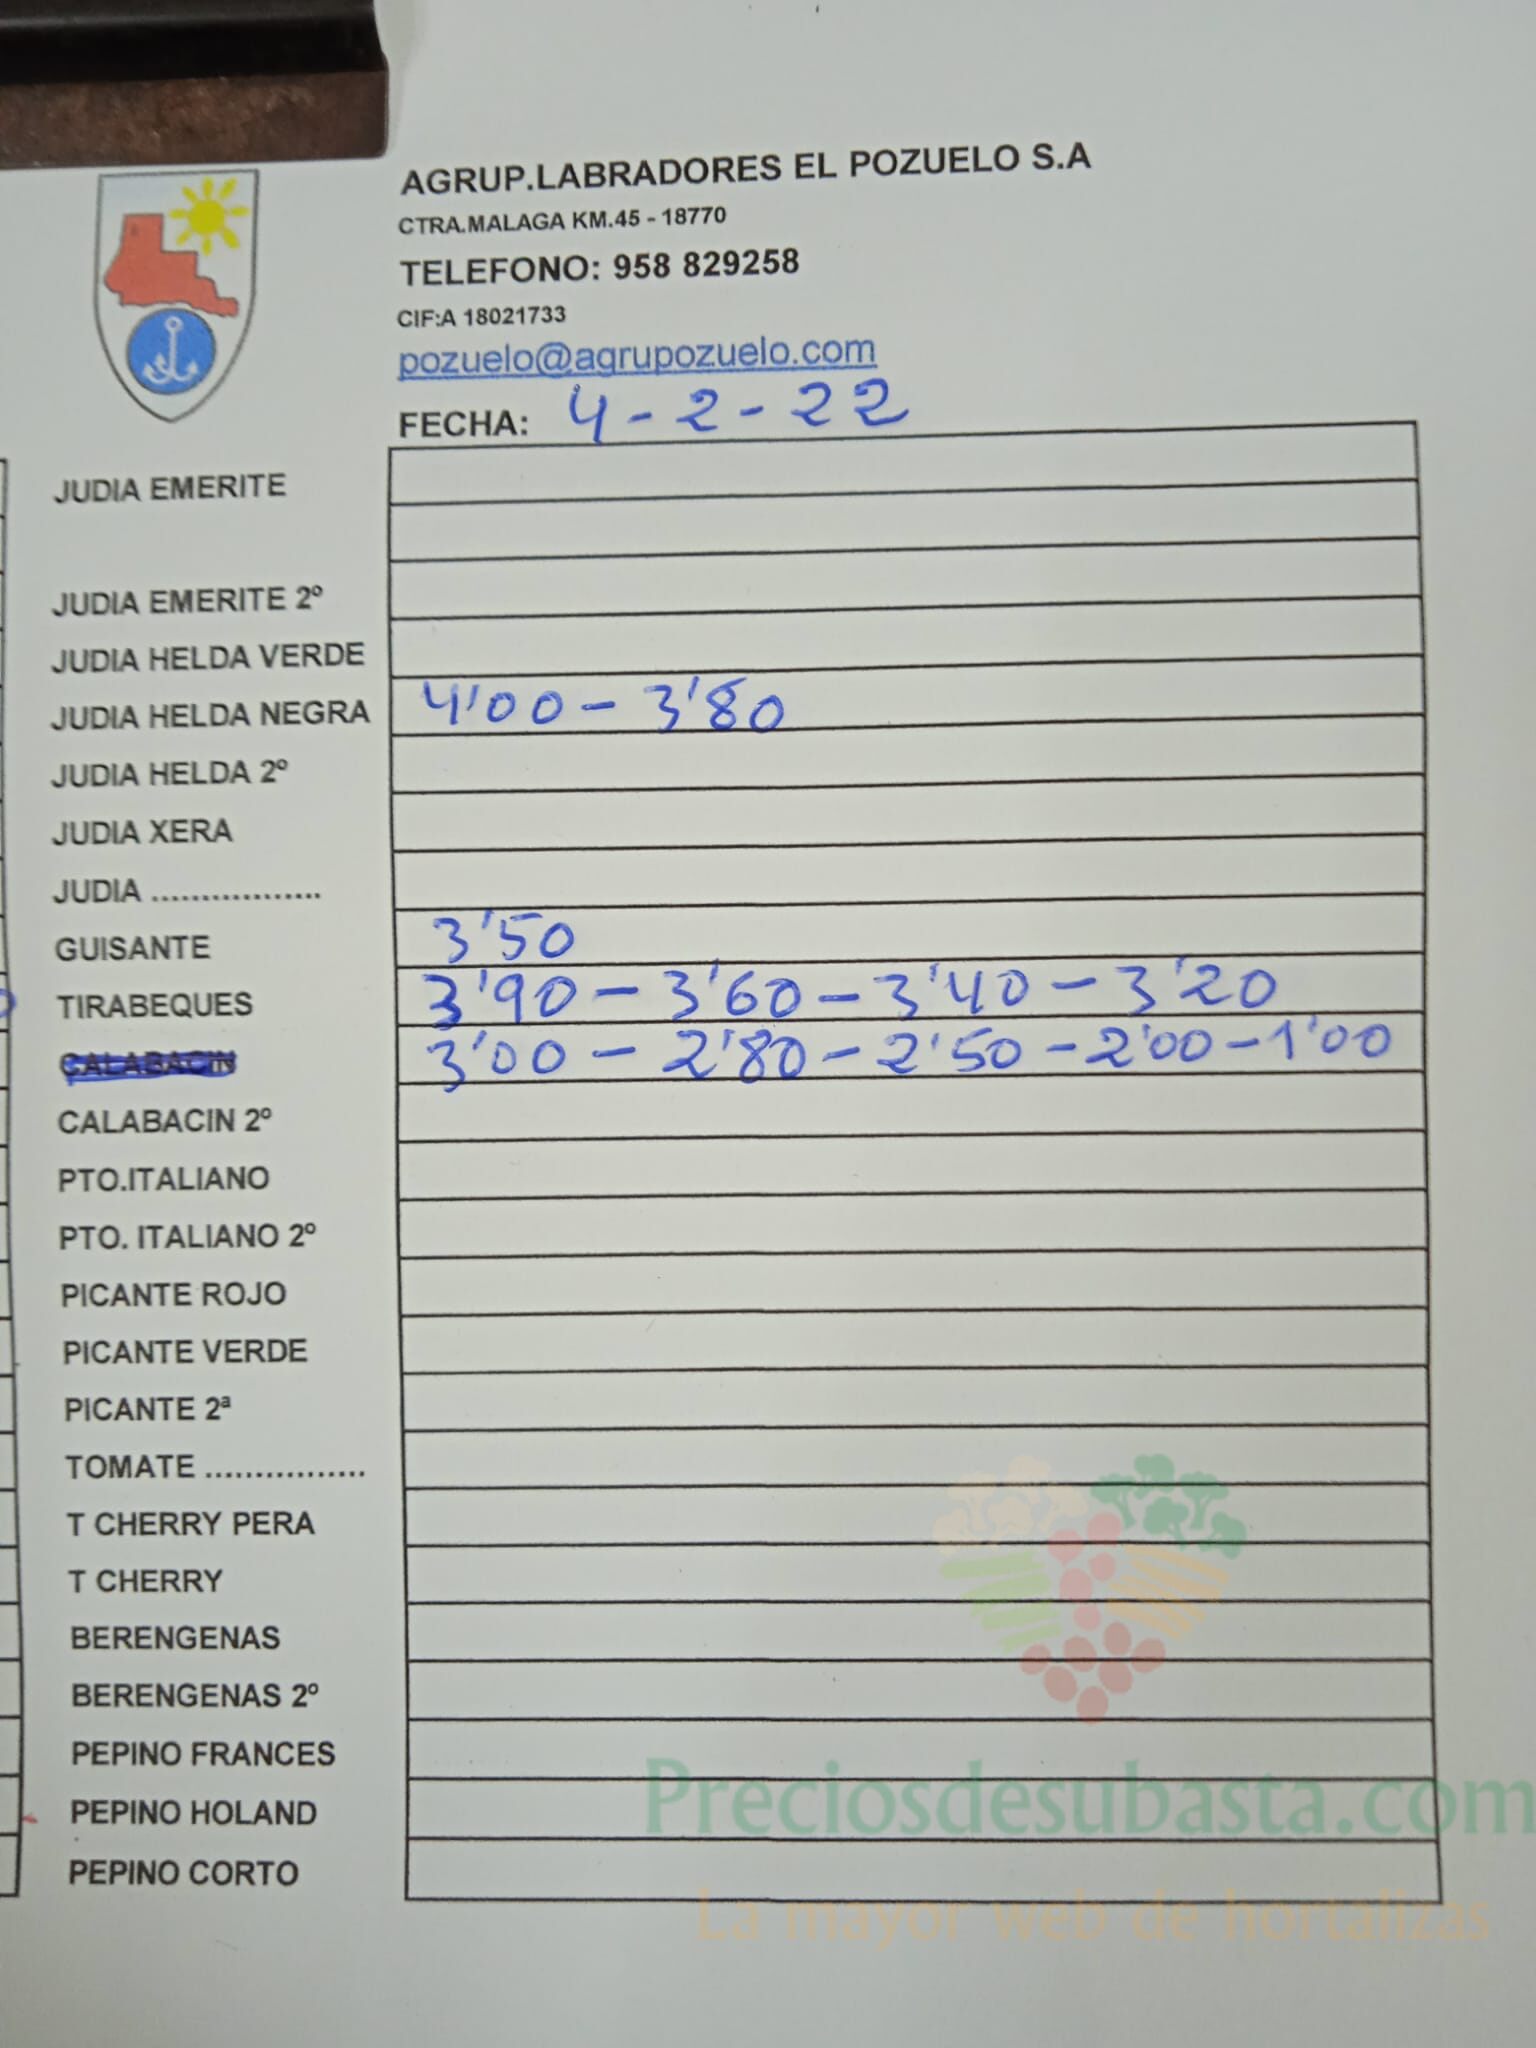 AGRUP.LABRADORES EL POZUELO S.A
CTRA.MALAGA KM.45 - 18770
TELEFONO: 958 829258
CIF:A 18021733
pozuelo@agrupozuelo.com
FECHA: 4-2-22
JUDIA EMERITE
JUDIA EMERITE 2º
JUDIA HELDA VERDE
JUDIA HELDA NEGRA 4'00 - 3'80
JUDIA HELDA 2º
JUDIA XERA
JUDIA .................
GUISANTE 3'50
TIRABEQUES 3'90 - 3'60 - 3'40 - 3'20
CALABACIN 3'00 - 2'80 - 2'50 - 2'00 - 1'00
CALABACIN 2º
PTO.ITALIANO
PTO. ITALIANO 2º
PICANTE ROJO
PICANTE VERDE
PICANTE 2ª
TOMATE ................
T CHERRY PERA
T CHERRY
BERENGENAS
BERENGENAS 2º
PEPINO FRANCES
PEPINO HOLAND
PEPINO CORTO
Preciosdesubasta.com
La mayor web de hortalizas